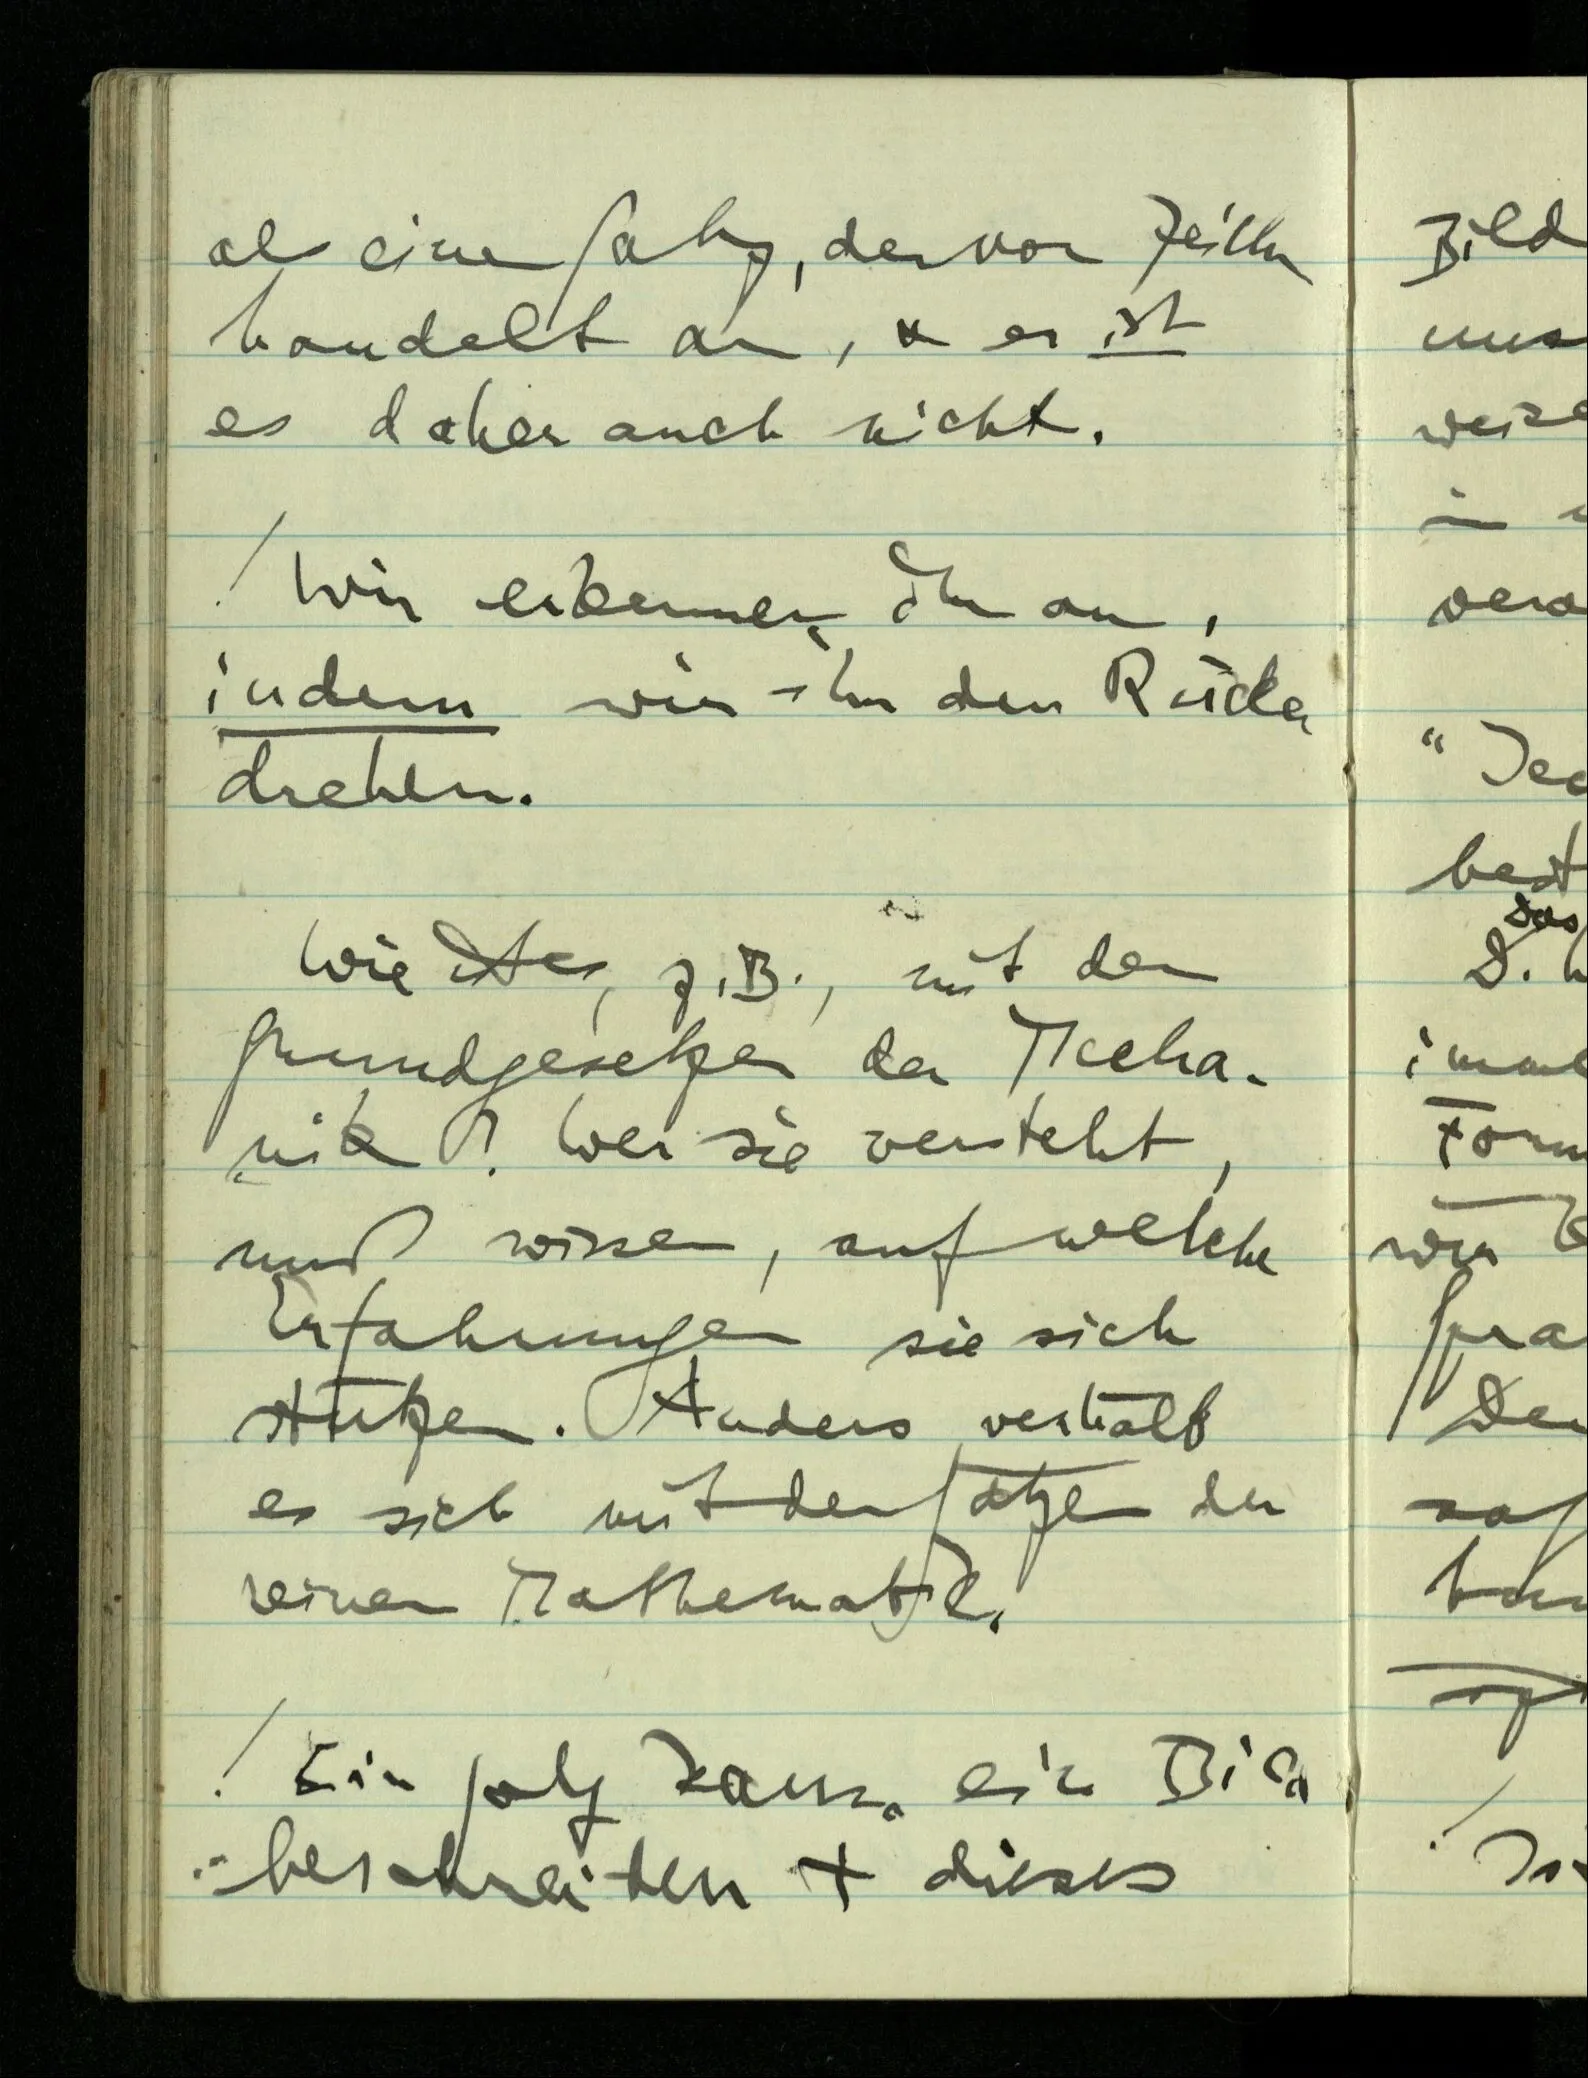 als einen Satz, der von Zeichen
handelt an, & er ist
es daher auch nicht.
/ Wir erkennen ihn an,
indem wir ihm den Rücken
drehen.
Wie ist es, z.B., mit den
Grundgesetzen der Mecha-
nik? Wer sie versteht,
muß wissen, auf welche
Erfahrungen sie sich
stützen. Anders verhält
es sich mit den Sätzen der
reinen Mathematik.
/ Ein Satz kann ein Bild
beschreiben + dieses
Bild
weise
in
"
Das
D. h
Form
wir
Den
/